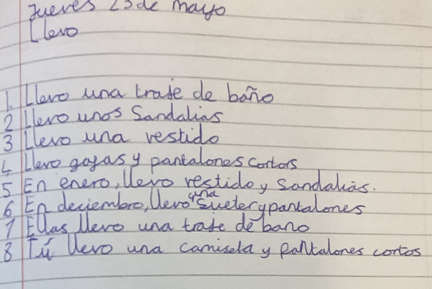 Jueves 23 de mayo
Llevo
1. Llevo una traje de baño
2 Llevo unos Sandalias
3 Llevo una vestido
4 Llevo gafas y pantalones cortors
5 En enero, llevo vestido y sandalias.
6 En deciembro, llevo una suetery pantalones
7 Ellas llevo una traje de bano
8 Tú llevo una camiseta y pantalones cortos